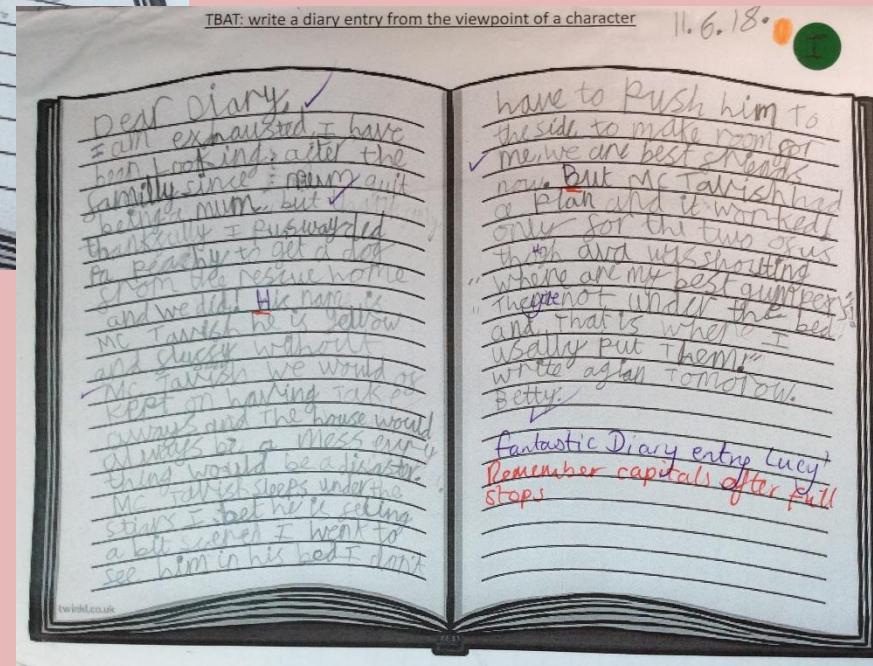 TBAT: write a diary entry from the viewpoint of a character
11.6.18.
I
Dear Diary,
I am exhausted, I have
been looking after the
familly since mum quit
being mum, but
thankfully I purswayded
Pa peachy to get a dog
from the rescue home
and we did! His name is
Mc Tavish he is yellow
and fluffy without
Mc Tavish we would of
kept on having take
aways and The house would
always be a mess evry
thing would be a disaster.
Mc Tavish sleeps under the
stairs I bet he is feling
a bit scared I went to
see him in his bed I don't
have to Push him to
the side to make room for
me, we are best friends
now. But Mc Tavish had
a plan and it worked
only for the two of us
though ava was shouting
"whare are my best gumpers"
"They're not under the bed
and That is where I
usally put Them!"
write agian Tomorow.
Betty.
fantastic Diary entry Lucy
Remember capitals after full
stops
twinkl.co.uk